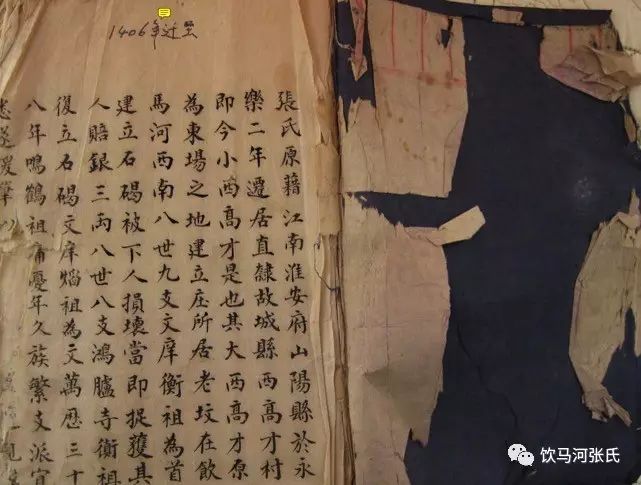 1406年迁至
張氏原藉江南淮安府山陽縣於永
樂二年遷居直隸故城縣西高才村
即今小酉高才是也其大西高才原
為東場之地建立庄所居老坟在飲
馬河西南八世九支文庠衡祖為首
建立石碣被下人損壞當即捉獲其
人賠銀三両八世八支鴻臚寺衡祖
復立石碣文庠焰祖為文萬歷三十
八年鳴鶴祖痛憂年久族繁支派宜
饮马河张氏